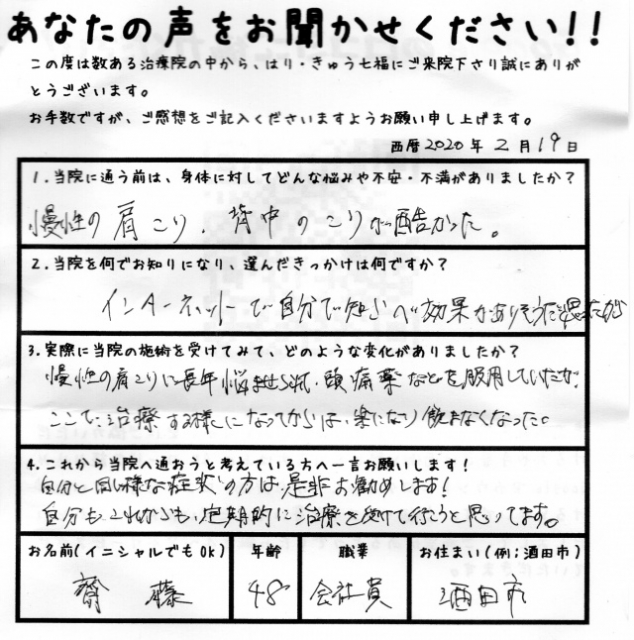 あなたの声をお聞かせください!!
この度は数ある治療院の中から、はり・きゅう七福にご来院下さり誠にありが
とうございます。
お手数ですが、ご感想をご記入くださいますようお願い申し上げます。
西暦2020年2月19日
1.当院に通う前は、身体に対してどんな悩みや不安・不満がありましたか?
慢性の肩こり、背中のこりが酷かった。
2.当院を何でお知りになり、選んだきっかけは何ですか?
インターネットで自分で知らべ効果がありそうだと思ったから
3.実際に当院の施術を受けてみて、どのような変化がありましたか?
慢性の肩こりに長年悩ませられ、頭痛薬などを服用していたが
ここで治療する様になってからは、楽になり飲まなくなった。
4.これから当院へ通おうと考えている方へ一言お願いします!
自分と同じ様な症状の方は是非お勧めします!
自分もこれからも、定期的に治療を受けて行こうと思ってます。
お名前(イニシャルでもOK) 年齢 職業 お住まい(例;酒田市)
齊藤 48 会社員 酒田市